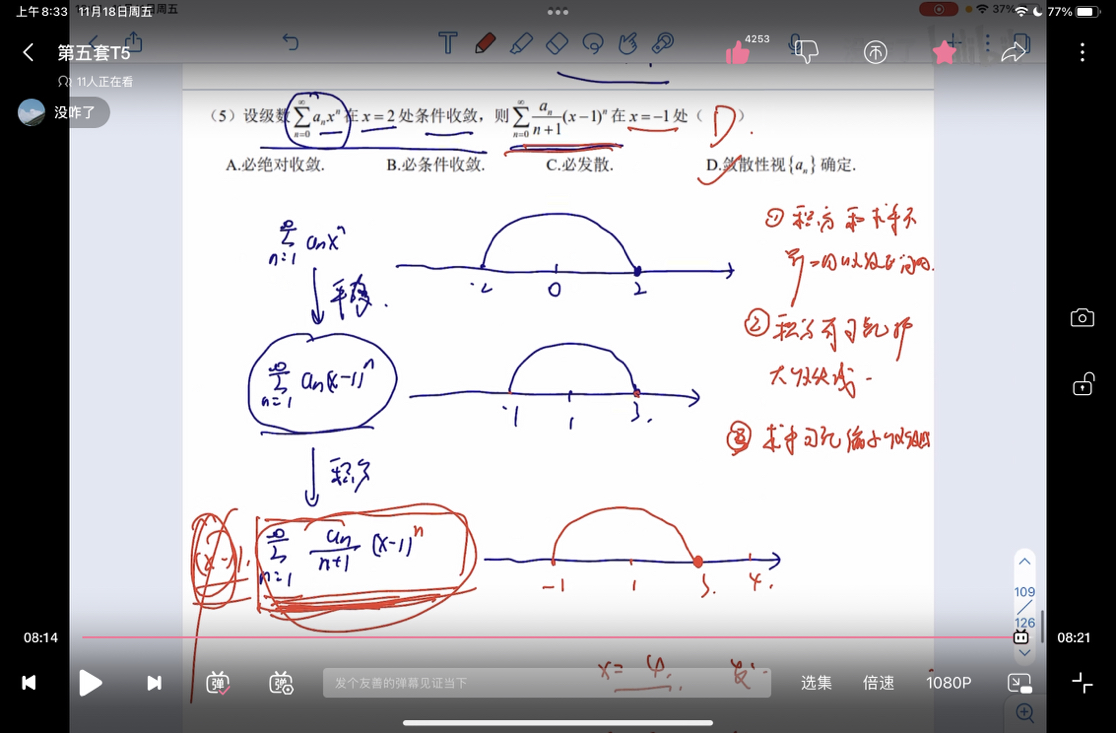 上午 8:33 11月18日周五
37%
77%
第五套T5
4253
11人正在看
没咋了
(5) 设级数 \sum_{n=0}^{\infty} a_n x^n 在 x = 2 处条件收敛, 则 \sum_{n=0}^{\infty} \frac{a_n}{n+1}(x-1)^n 在 x = -1 处 ( D ).
A.必绝对收敛. B.必条件收敛. C.必发散. D.敛散性视{a_n}确定.
\sum_{n=1}^{\infty} a_n x^n
-2 0 2
平移.
\sum_{n=1}^{\infty} a_n (x-1)^n
-1 1 3.
积分
(x-1). \sum_{n=1}^{\infty} \frac{a_n}{n+1} (x-1)^n
-1 1 3. 4.
x = 4.
① 积分和求导不
② 积分有可能扩
大收敛域.
③ 求导可能缩小收敛域
109
126
08:14
08:21
弹
弹
发个友善的弹幕见证当下
选集
倍速
1080P